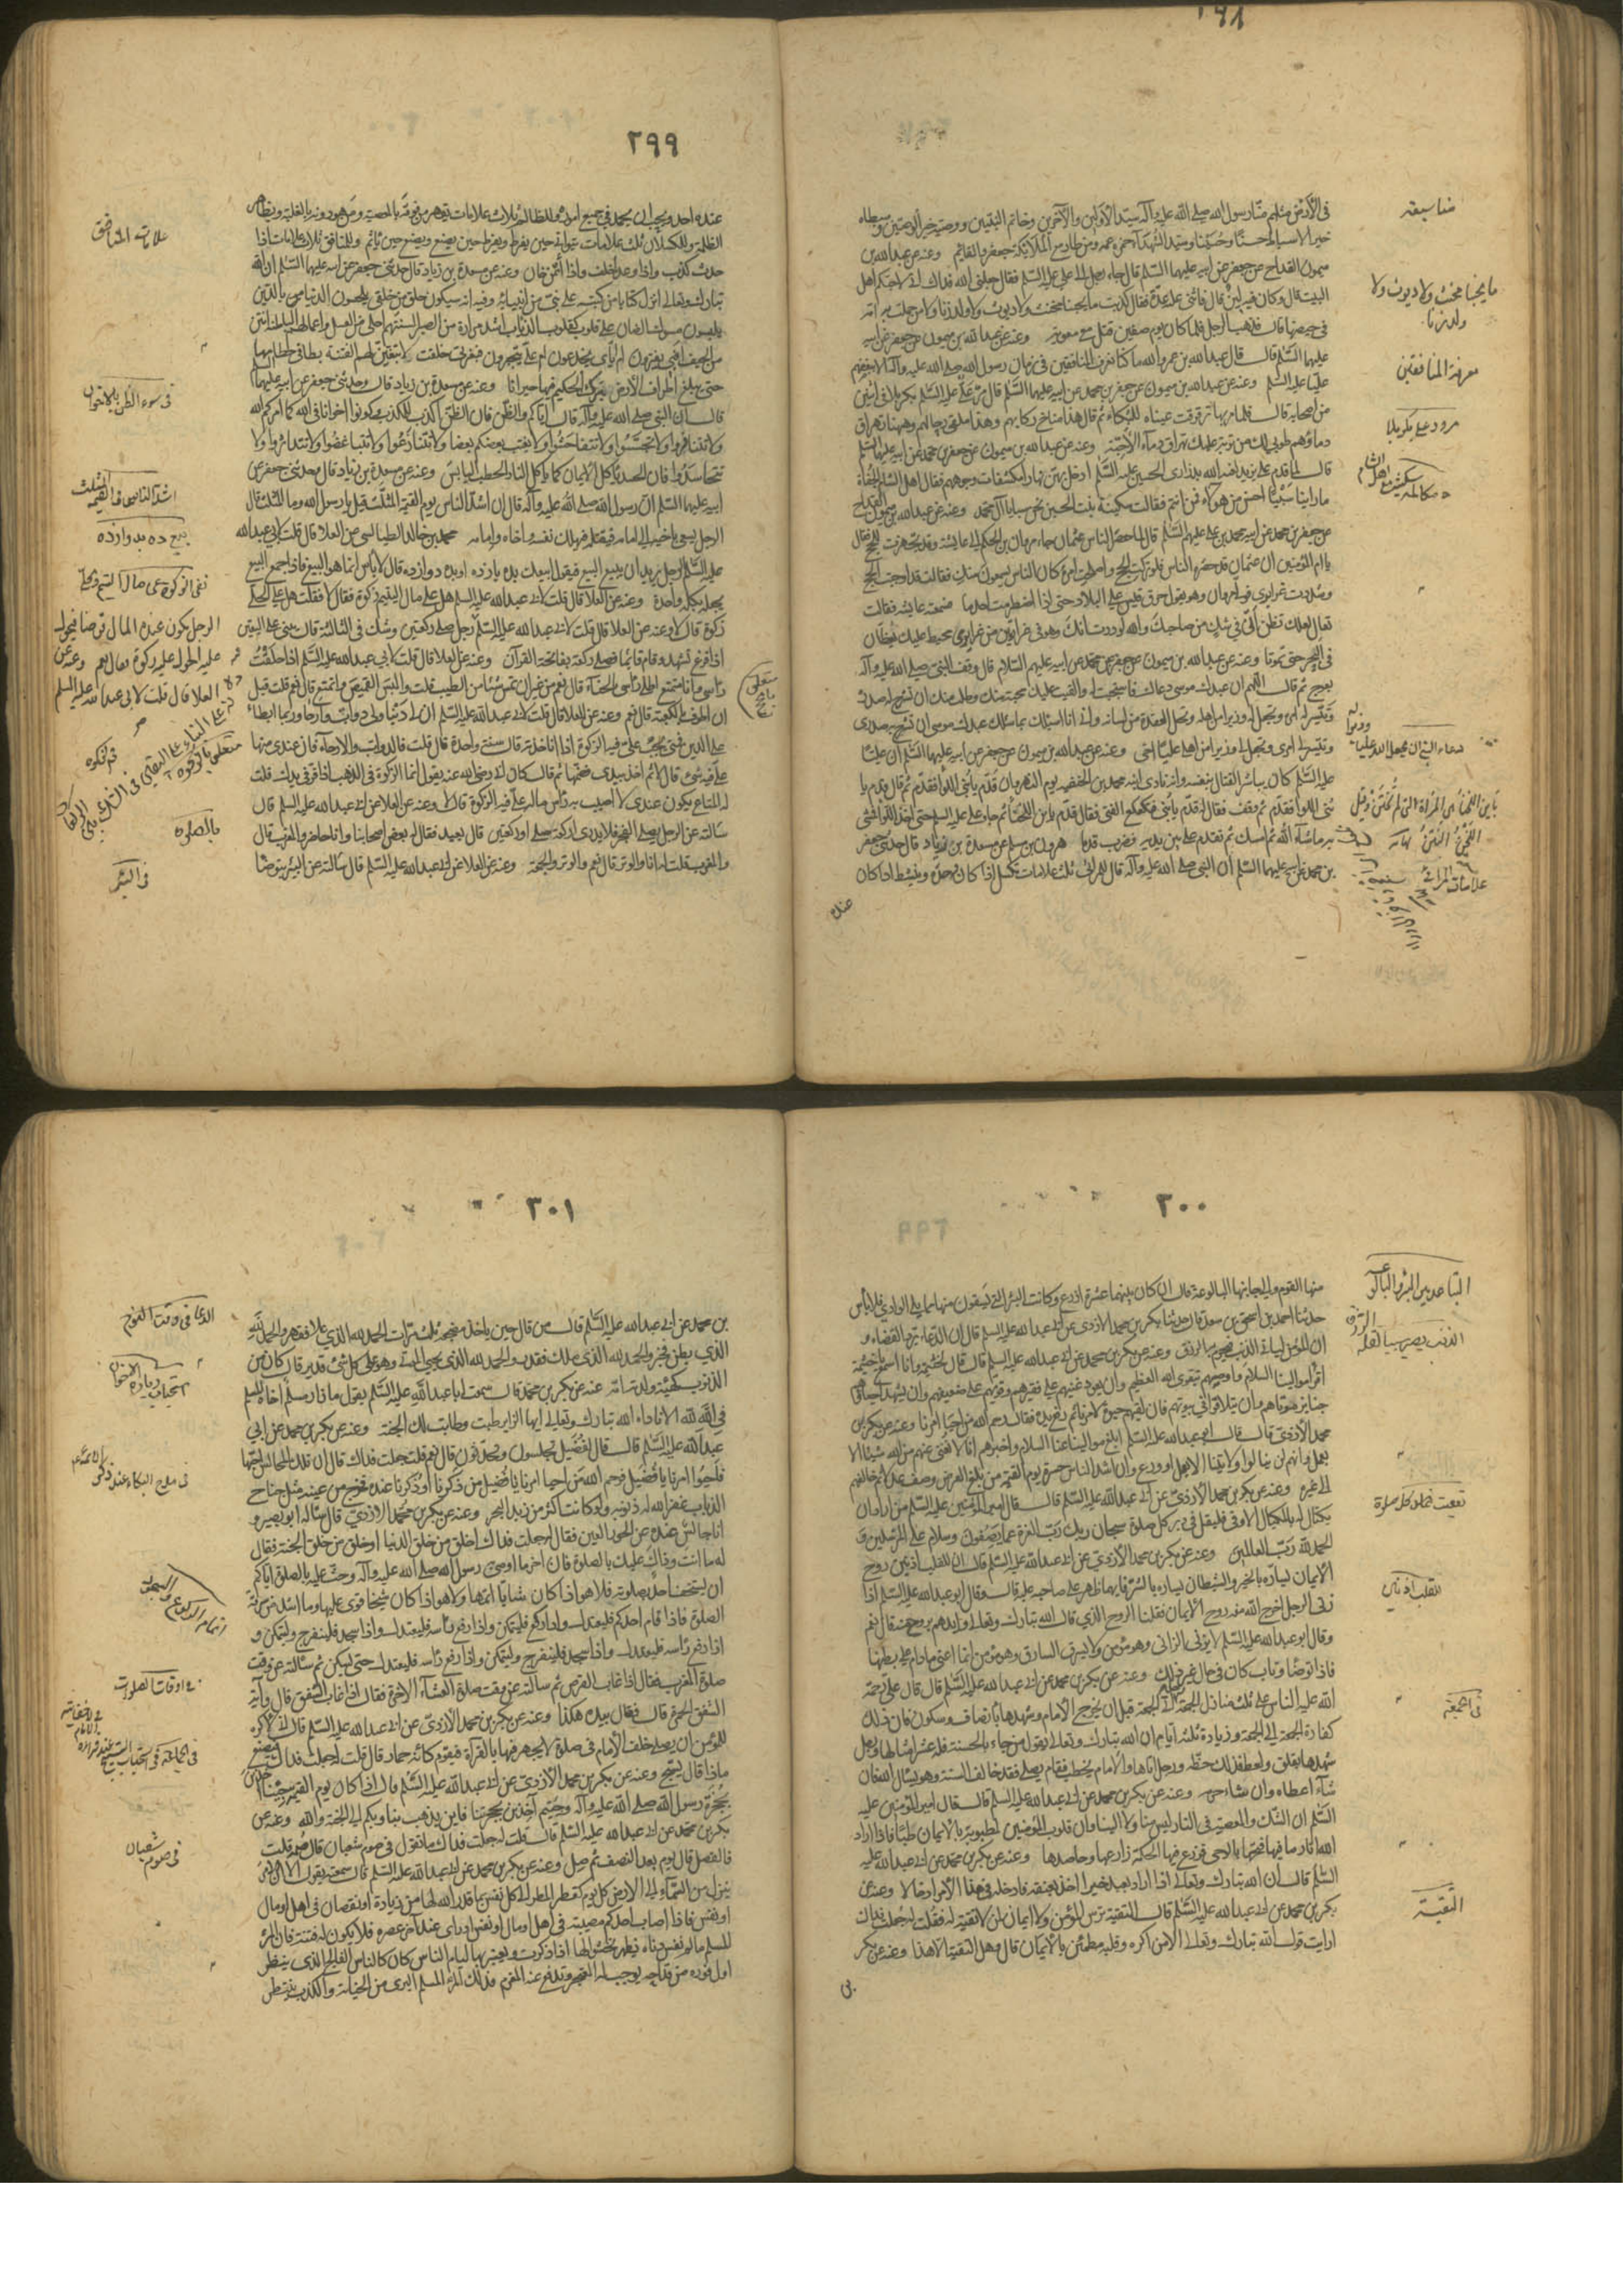 ٢٩٨
في الأرض مثلهم منا رسول الله صلى الله عليه وآله سيد الأولين والآخرين وخاتم النبيين ووصيه خير الوصيين وسبطاه
خير الاسباط حسنا وحسينا وسيد الشهداء حمزة عمه ومن طار مع الملائكة جعفر والقائم وعنه عن عبد الله بن
ميمون القداح عن جعفر عن ابيه عليهما السلم قال جاء رجل الى علي عليه السلم فقال جعلني الله فداك اني لاحبكم اهل
البيت قال وكان فيه لين قال فاثنى عليه عدة فقال كذبت ما يحبنا مخنث ولا ديوث ولا ولد زنا ولا من حملت به امه
في حيضها قال فذهب الرجل فلما كان يوم صفين قتل مع معوية وعنه عن عبد الله بن ميمون عن جعفر عن ابيه
عليهما السلم قال قال عبد الله بن عمر والله ما كنا نعرف المنافقين في زمان رسول الله صلى الله عليه وآله الا ببغضهم
عليا عليه السلم وعنه عن عبد الله بن ميمون عن جعفر بن محمد عن ابيه عليهما السلم قال مر علي عليه السلم بكربلا في اثنين
من اصحابه قال فلما مر بها ترقرقت عيناه للبكاء ثم قال هذا مناخ ركابهم وهذا ملقى رحالهم وههنا تهراق
دماؤهم طوبى لك من تربة عليك تهراق دماء الأحبة وعنه عن عبد الله بن ميمون عن جعفر بن محمد عن ابيه عليهما السلم
قال لما قدم على يزيد لعنه الله بذراري الحسين عليه السلم ادخل بهن نهارا مكشفات وجوههم فقال اهل الشام الجفاة
ما راينا سبيا احسن من هؤلاء فمن انتم فقالت سكينة بنت الحسين نحن سبايا آل محمد وعنه عن عبد الله بن ميمون القداح
عن جعفر بن محمد عن ابيه محمد بن علي عليهم السلم قال لما حصر الناس عثمان جاء مروان بن الحكم الى عايشة وقد تجهزت للحج فقال
يا ام المؤمنين ان عثمان قد حصره الناس فلو تركت الحج واصلحت امره كان الناس يسمعون منك فقالت قد اوجبت الحج
وشددت غرايري فولى مروان وهو يقول حرق قيس علي البلاد حتى اذا اضطرمت احذما فسمعته عايشه فقالت
تعال لعلك تظن اني في شك من صاحبك والله لوددت انك وهو في غرارتين من غرايري مخيط عليك تغطان
في البحر حتى تموتا وعنه عن عبد الله بن ميمون عن جعفر بن محمد عن ابيه عليهم السلام قال وقف النبي صلى الله عليه وآله
وتيسر لي امري وتجعل لي وزيرا من اهلي عليا اخي وعنه عن عبد الله بن ميمون عن جعفر عن ابيه عليهما السلم ان عليا
عليه السلم كان يباشر القتال بنفسه وانه نادى ابنه محمد بن الحنفيه يوم النهروان قدم يا بني اللوا فقدم ثم قال قدم يا
بني اللوا فقدم ثم وقف فقال له قدم يا بني فتكعكع الفتى فقال قدم يابن اللخناء ثم جاء علي عليه السلم حتى اخذ اللوا فمشى
به ما شاء الله ثم امسك ثم تقدم علي بين يديه فضرب قدما هرون بن مسلم عن مسعدة بن زياد قال حدثني جعفر
بن محمد عن ابيه عليهما السلم ان النبي صلى الله عليه وآله قال للمرائي ثلث علامات يكسل اذا كان وحده وينشط اذا كان
عنده
ما يحبنا مخنث ولا ديوث ولا
ولد زنا
معرفة المنافقين
مرور علي بكربلا
علامات المرائي
٢٩٩
عنده احد ويحب ان يحمد في جميع اموره وللظالم ثلاث علامات يقهر من فوقه بالمعصية ومن هو دونه بالغلبة ويظاهر
الظلمة وللكسلان ثلث علامات يتوانى حتى يفرط ويفرط حتى يضيع ويضيع حتى ياثم وللمنافق ثلاث علامات اذا
حدث كذب واذا وعد اخلف واذا ائتمن خان وعنه عن مسعدة بن زياد قال حدثني جعفر عن ابيه عليهما السلم ان الله
تبارك وتعالى انزل كتابا من كتبه على نبي من انبيائه وفيه انه سيكون خلق من خلقي يلحسون الدنيا بالدين
يلبسون مسوك الضان على قلوب كقلوب الذئاب اشد مرارة من الصبر السنتهم احلى من العسل واعمالهم الباطنة انتن
من الجيف افبي يغترون ام اياي يخدعون ام علي يتجبرون فبعزتي حلفت لابعثن لهم الفتنة تطا في خطامها
حتى يبلغ اطراف الارض يترك الحكيم فيها حيرانا وعنه عن مسعدة بن زياد قال وحدثني جعفر عن ابيه عليهما السلم
قال ان النبي صلى الله عليه وآله قال اياكم والظن فان الظن اكذب الكذب وكونوا اخوانا في الله كما امركم الله
ولا تتنافروا ولا تجسسوا ولا تتفاحشوا ولا يغتب بعضكم بعضا ولا تتنازعوا ولا تتباغضوا ولا تتدابروا ولا
تتحاسدوا فان الحسد ياكل الايمان كما ياكل النار الحطب اليابس وعنه عن مسعدة بن زياد قال وحدثني جعفر عن
ابيه عليهما السلم ان رسول الله صلى الله عليه وآله قال ان اشد الناس يوم القيمة المثلث قيل يا رسول الله وما المثلث قال
الرجل يسعى باخيه الى امامه فيقتله فيهلك نفسه واخاه وامامه محمد بن خالد الطيالسي عن العلا قال قلت لابي عبد الله
عليه السلم الرجل يريد ان يبيع البيع فيقول ابيعك بده يازده او بده دوازده قال لا باس انما هو البيع فاذا جمع البيع
يجعله جملة واحدة وعنه عن العلا قال قلت لابي عبد الله عليه السلم هل على مال اليتيم زكوة فقال لا فقلت هل على الحلي
زكوة قال لا وعنه عن العلا قال قلت لابي عبد الله عليه السلم رجل صلى ركعتين وشك في الثالثة قال يبني على اليقين
اذا فرغ تشهد وقام قائما فصلى ركعة بفاتحة القرآن وعنه عن العلا قال قلت لابي عبد الله عليه السلم اذا حلقت
راسي وانا متمتع اطلي راسي بالحناء قال نعم من غير ان تمس شيئا من الطيب قلت والبس القميص واتمتع قال نعم قلت قبل
ان اطوف بالكعبة قال نعم وعنه عن العلا قال قلت لابي عبد الله عليه السلم ان لي دينا ولي دواب وارحاء وربما ابطا
علي الدين فمتى يجب علي فيه الزكوة اذا انا اخذته قال سنة واحدة قال قلت فالدواب والارحاء فان عندي منها
علي فيه شيء قال لا ثم اخذ بيدي فضمها ثم قال كان ابي رضي الله عنه يقول انما الزكوة في الذهب اذا قر في يدك قلت
له المتاع يكون عندي لا اصيب به راس ماله علي فيه الزكوة قال لا وعنه عن العلا عن ابي عبد الله عليه السلم قال
سالته عن الرجل يصلي الفجر فلا يدري اركعة صلى او ركعتين قال يعيد فقال له بعض اصحابنا وانا حاضر والمغرب قال
والمغرب قلت له انا والوتر قال نعم والوتر والجمعة وعنه عن العلا عن ابي عبد الله عليه السلم قال سالته عن البئر يتوضا
علامات المنافق
في سوء الظن بالاخوان
اشد الناس في القيمه المثلث
بيع ده بدوازده
نفي الزكوة عن مال اليتيم والحلي
الرجل يكون عنده المال قرضا فيحول
عليه الحول عليه زكوة قال نعم وعنه عن
العلا قال قلت لابي عبد الله عليه السلم
في البئر
٣٠٠
منها القوم والى جانبها البالوعة قال ان كان بينهما عشرة اذرع وكانت البئر التي يستقون منها مما يلي الوادي فلا باس
حدثنا احمد بن اسحق بن سعد قال حدثنا بكر بن محمد الازدي عن ابي عبد الله عليه السلم قال ان الدعاء يرد القضاء و
ان المؤمن لياتي الذنب فيحرم به الرزق وعنه عن بكر بن محمد عن ابي عبد الله عليه السلم قال قال لخيثمة وانا اسمع يا خيثمة
اقرا موالينا السلام واوصهم بتقوى الله العظيم وان يعود غنيهم على فقيرهم وقويهم على ضعيفهم وان يشهد احياؤهم
جنايز موتاهم وان يتلاقوا في بيوتهم فان لقياهم حيوة لامرنا ثم رفع يده فقال رحم الله من احيا امرنا وعنه عن بكر بن
محمد الازدي قال قال ابو عبد الله عليه السلم ابلغ موالينا عنا السلام واخبرهم انا لا نغني عنهم من الله شيئا الا
بعمل وانهم لن ينالوا ولايتنا الا بعمل او ورع وان اشد الناس حسرة يوم القيمة من وصف عدلا ثم خالفه
الى غيره وعنه عن بكر بن محمد الازدي عن ابي عبد الله عليه السلم قال قال امير المؤمنين عليه السلم من اراد ان
يكتال له بالمكيال الاوفى فليقل في دبر كل صلوة سبحان ربك رب العزة عما يصفون وسلام على المرسلين و
الحمد لله رب العالمين وعنه عن بكر بن محمد الازدي عن ابي عبد الله عليه السلم قال ان للقلب اذنين روح
الايمان يساره بالخير والشيطان يساره بالشر فايهما ظهر على صاحبه غلبه قال وقال ابو عبد الله عليه السلم اذا
زنى الرجل اخرج الله منه روح الايمان فقلنا الروح الذي قال الله تبارك وتعالى وايدهم بروح منه قال نعم
وقال ابو عبد الله عليه السلم لا يزني الزاني وهو مؤمن ولا يسرق السارق وهو مؤمن انما اعني ما دام على بطنها
فاذا توضا وتاب كان في حال غير ذلك وعنه عن بكر بن محمد عن ابي عبد الله عليه السلم قال قال علي رحمة
الله عليه الناس على ثلث منازل الجمعة رجل اتى الجمعة قبل ان يخرج الامام وشهدها بانصات وسكون فان ذلك
كفارة الجمعة الى الجمعة وزيادة ثلثة ايام ان الله تبارك وتعالى يقول من جاء بالحسنة فله عشر امثالها ورجل
شهدها بقلق ولغط فذلك حظه ورجل اتاها والامام يخطب فقام يصلي فقد خالف السنة وهو يسال الله فان
شاء اعطاه وان شاء حرمه وعنه عن بكر بن محمد عن ابي عبد الله عليه السلم قال قال امير المؤمنين عليه
السلم ان الشك والمعصية في النار ليس منا ولا الينا وان قلوب المؤمنين لمطوية بالايمان طيا فاذا اراد
الله انارة ما فيها فتحها بالوحي فزرع فيها الحكمة زارعها وحاصدها وعنه عن بكر بن محمد عن ابي عبد الله عليه
السلم قال ان الله تبارك وتعالى اذا اراد بعبد خيرا اخذ بعنقه فادخله في هذا الامر ادخالا وعنه عن
بكر بن محمد عن ابي عبد الله عليه السلم قال التقية ترس المؤمن ولا ايمان لمن لا تقية له فقلت له جعلت فداك
ارايت قول الله تبارك وتعالى الا من اكره وقلبه مطمئن بالايمان قال وهل التقية الا هذا وعنه عن بكر
بن
التباعد بين البئر والبالوعة
الذنب يصير سببا لقلة الرزق
تعقيب عند كل صلوة
للقلب اذنان
في الجمعة
التقية
٣٠١
بن محمد عن ابي عبد الله عليه السلم قال من قال حين ياخذ مضجعه ثلث مرات الحمد لله الذي علا فقهر والحمد لله
الذي بطن فخبر والحمد لله الذي ملك فقدر والحمد لله الذي يحيي الموتى وهو على كل شيء قدير قال كان من
الذنوب كهيئة ولدته امه وعنه عن بكر بن محمد قال سمعت ابا عبد الله عليه السلم يقول ما زار مسلم اخاه المسلم
في الله لله الا ناداه الله تبارك وتعالى ايها الزاير طبت وطابت لك الجنة وعنه عن بكر بن محمد عن ابي
عبد الله عليه السلم قال قال لفضيل تجلسون وتحدثون قال نعم قلت جعلت فداك قال ان تلك المجالس احبها
فاحيوا امرنا يا فضيل فرحم الله من احيا امرنا يا فضيل من ذكرنا او ذكرنا عنده فخرج من عينه مثل جناح
الذباب غفر الله له ذنوبه ولو كانت اكثر من زبد البحر وعنه عن بكر بن محمد الازدي قال ساله ابو بصير و
انا جالس عنده عن الحور العين فقال له جعلت فداك اخلق من خلق الدنيا او خلق من خلق الجنة فقال
له ما انت وذاك عليك بالصلوة فان آخر ما اوصى به رسول الله صلى الله عليه وآله وحث عليه الصلوة اياكم
ان يستخف احدكم بصلوته فلا هو اذا كان شابا اتمها ولا هو اذا كان شيخا قوي عليها وما اشد من سرقة
الصلوة فاذا قام احدكم فليعتدل واذا ركع فليتمكن واذا رفع راسه فليعتدل واذا سجد فلينفرج وليتمكن و
اذا رفع راسه فليعتدل واذا سجد فلينفرج وليتمكن واذا رفع راسه فليعتدل حتى يسكن ثم سالته عن وقت
صلوة المغرب فقال اذا غاب القرص ثم سالته عن وقت صلوة العشاء الاخرة فقال اذا غاب الشفق قال وآية
الشفق الحمرة قال فقال بيده هكذا وعنه عن بكر بن محمد الازدي عن ابي عبد الله عليه السلم قال اني لاكره
للمؤمن ان يصلي خلف الامام في صلوة لا يجهر فيها بالقراءة فيقوم كانه حمار قال قلت له جعلت فداك فيصنع
ماذا قال يسبح وعنه عن بكر بن محمد الازدي عن ابي عبد الله عليه السلم قال اذا كان يوم القيمة جئنا آخذين
بحجزة رسول الله صلى الله عليه وآله وجئتم آخذين بحجزتنا فاين يذهب بنا وبكم الى الجنة والله وعنه عن
بكر بن محمد عن ابي عبد الله عليه السلم قال قلت له جعلت فداك ما تقول في صوم شعبان قال صمه قلت
فالفصل قال يوم بعد النصف ثم صل وعنه عن بكر بن محمد عن ابي عبد الله عليه السلم قال سمعته يقول ان الامر
ينزل من السماء الى الارض كل يوم كقطر المطر الى كل نفس بما قدر الله لها من زيادة او نقصان في اهل او مال
او نفس فاذا اصاب احدكم مصيبة في اهل او مال او نفس او راى عند آخر عفوه فلا يكون له فتنة فان المرء
المسلم ما لم يغش دناءة فيظهر تخشع لها اذا ذكرت ويغرى بها لئام الناس كان كالياسر الفالج الذي ينتظر
اول فوزة من قداحه يوجب له المغنم ويدفع عنه المغرم فذلك المرء المسلم البرى من الخيانة والكذب ينتظر
الدعا في وقت النوم
استحباب زيارة الاخوان
في مدح البكاء عند ذكر الائمة
اتمام الركوع والسجود
في اوقات الصلوات
في صوم شعبان